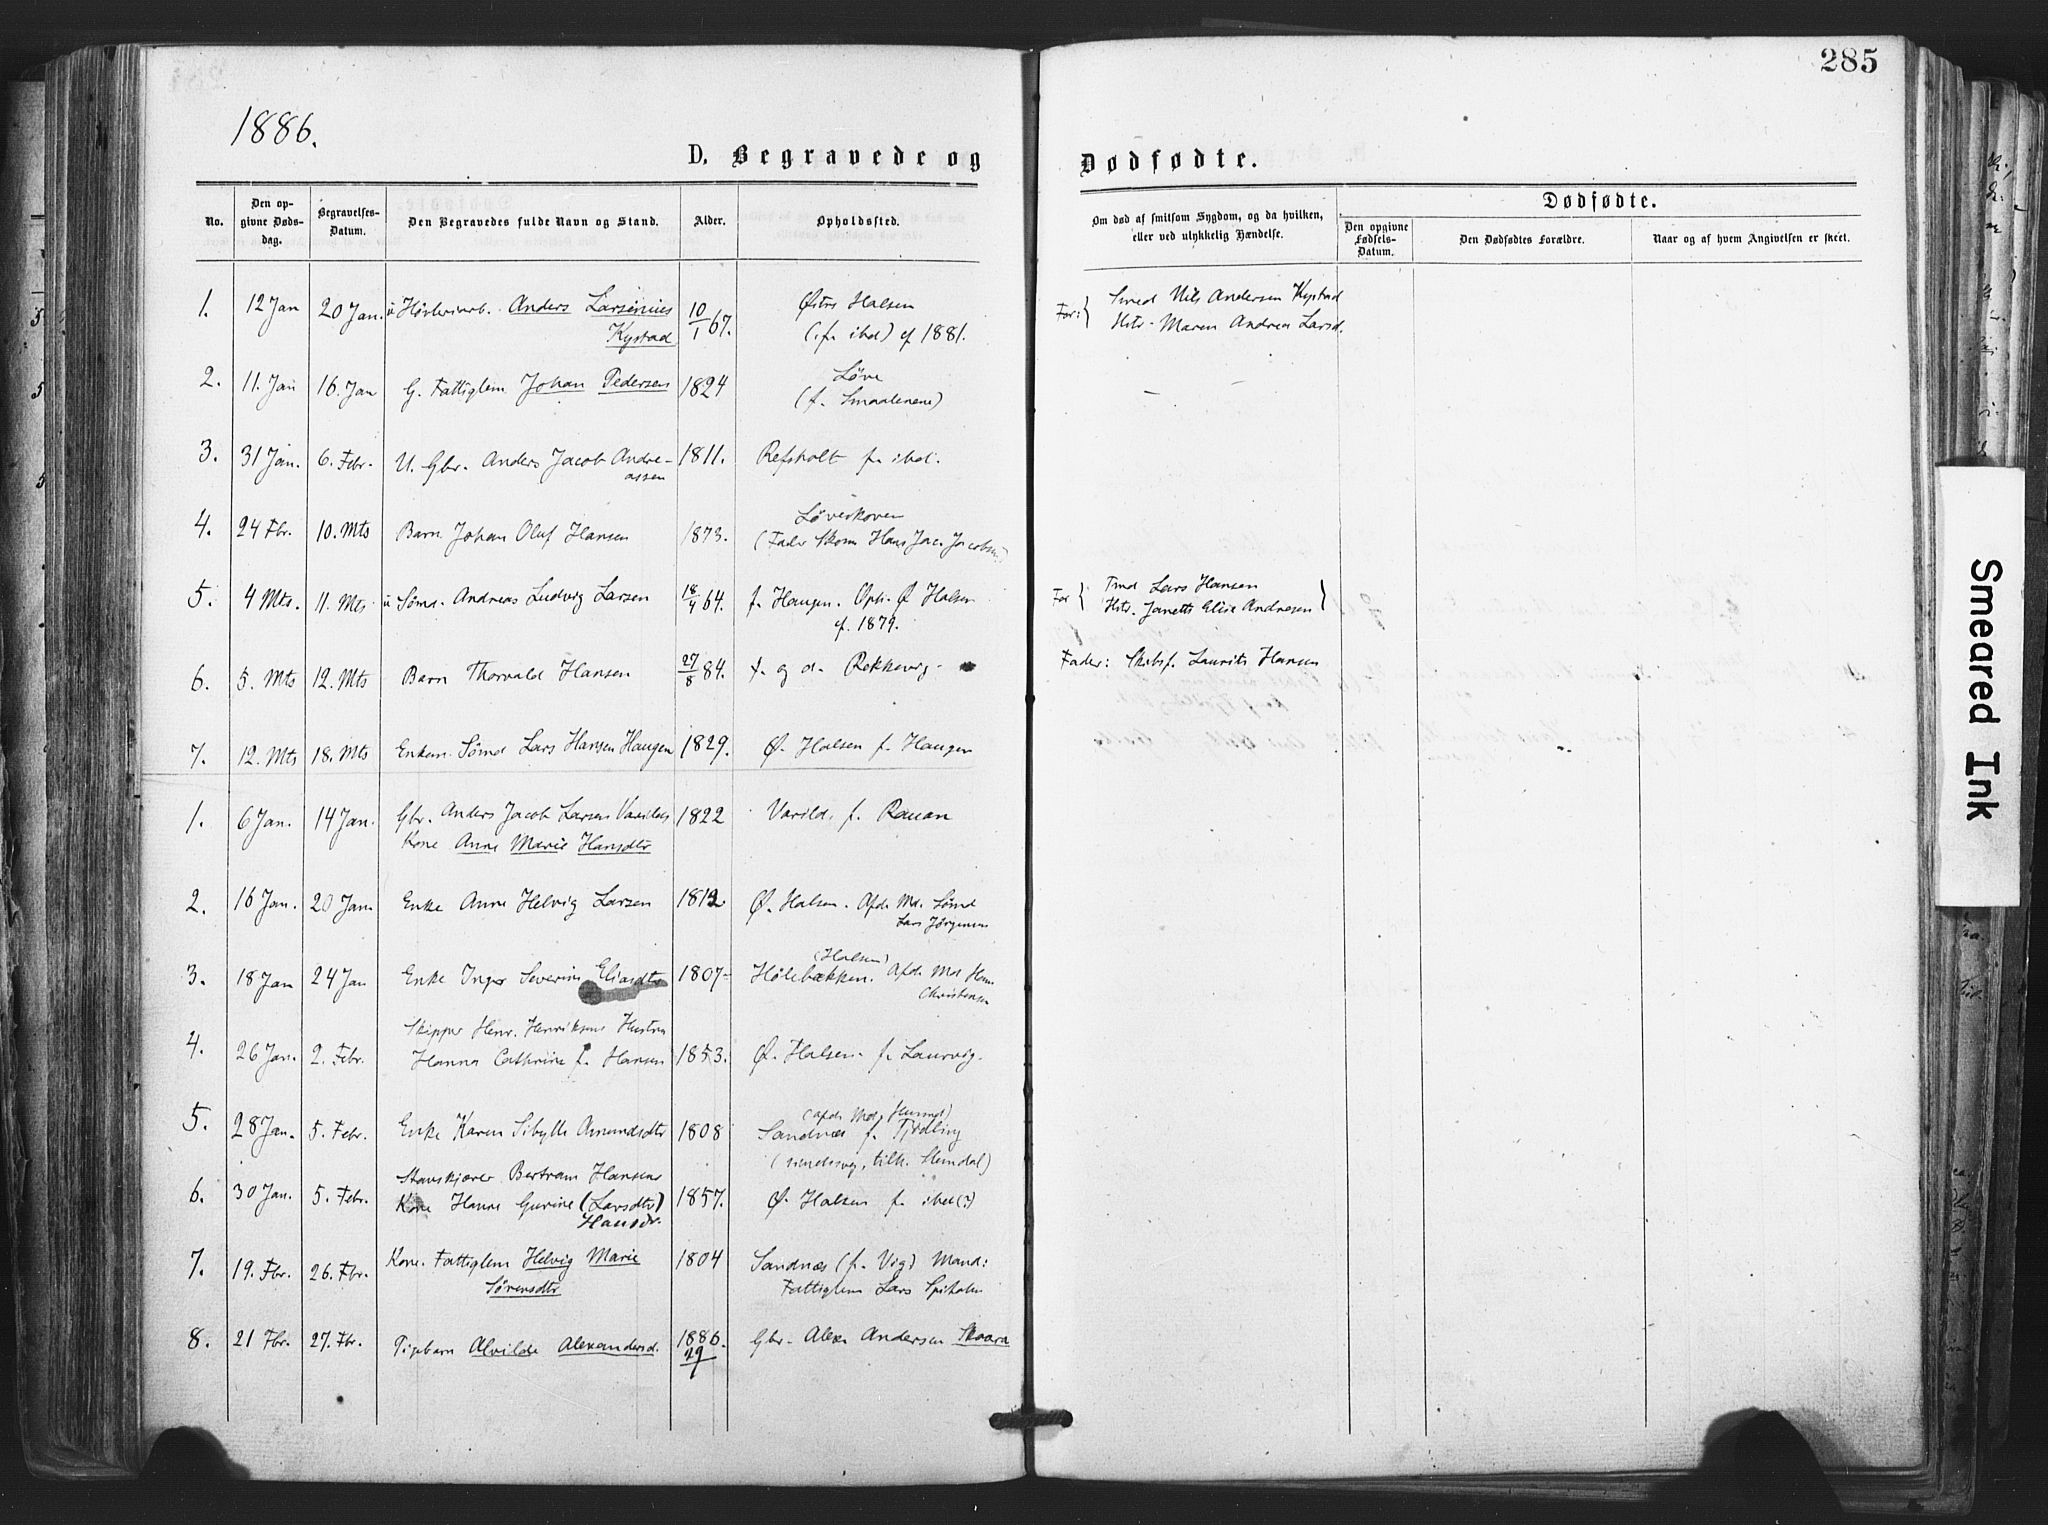 285
1886.
D. Begravede og
Dødfødte.
No.
Den op-
givne Døds-
dag.
Begravelses-
Datum.
Den Begravedes fulde Navn og Stand.
Alder.
Opholdssted.
Om død af smitsom Sygdom, og da hvilken,
eller ved ulykkelig Hændelse.
Dødfødte.
Den opgivne
Fødsels-
Datum.
Den Dødfødtes Forældre.
Naar og af hvem Angivelsen er skeet.
1. 12 Jan 20 Jan. Anders Larsenius 10/1 67. Østre Halsen
Kystad (f. ibid) cf 1881.
For: { Smed Nils Andersen Kystad
Hstr. Maren Andrea Larsd.
2. 11. Jan 16. Jan G. Fattiglem Johan Pedersen 1824 Løve
(f. Smaalenene)
3. 31 Jan. 6. Febr. U. Gbr. Anders Jacob Andre- 1811. Refsholt f. ibid.
assen
4. 24 Fbr. 10. Mts Barn Johan Oluf Hansen 1873. Løveskoven
(Fader Skom Hans Jac. Jacobsen)
5. 4 Mts. 11. Mts u Sømd. Andreas Ludvig Larsen 18/4 64. f. Haugen. Oph. Ø Halsen
cf. 1879.
For { Tmd Lars Hansen
Hstr. Janette Elise Andresen }
6. 5. Mts 12. Mts Barn Thorvald Hansen 27/8 84. f. og d. Rekkevig.
Fader: Skibsf. Laurits Hansen
7. 12. Mts 18. Mts Enkem. Sømd Lars Hansen Haugen 1829. Ø. Halsen f. Haugen
1. 6 Jan. 14 Jan. Gbr. Anders Jacob Larsen Varilds 1822 Varild. f. Rauan
Kone Anne Marie Hansdtr
2. 16 Jan. 20 Jan. Enke Anne Helvig Larsen 1812 Ø. Halsen. Afd. Md. Sømd
Lars Jørgensen
3. 18 Jan 24 Jan Enke Inger Severine Eliasdtr 1807 (Halsen)
Hølebækken. Afd. Md Hans
Christensen
4. 26 Jan. 2. Febr. Skipper Henr. Henriksens Hustru
Hanna Cathrine f. Hansen 1853. Ø. Halsen f. Laurvig.
5. 28 Jan. 5. Febr. Enke Karen Sibylle Amundsdtr 1808 (afd. Md. Husmd)
Sandnæs f. Tjødling
6. 30 Jan. 5. Febr. Stavskjærer Bertram Hansens
Kone Hanne Gurine (Larsdtr) 1857. Ø. Halsen f. ibid (?)
Hansdr.
7. 19. Fbr. 26. Fbr. Kone. Fattiglem Helvig Marie 1804 Sandnæs (f. Vig) Mand:
Sørensdtr Fattiglem Lars
8. 21 Fbr. 27. Fbr. Pigebarn Alvilde Alexandersd. 1886. Gbr. Alex Andersen Skaara
29/1
Smeared Ink